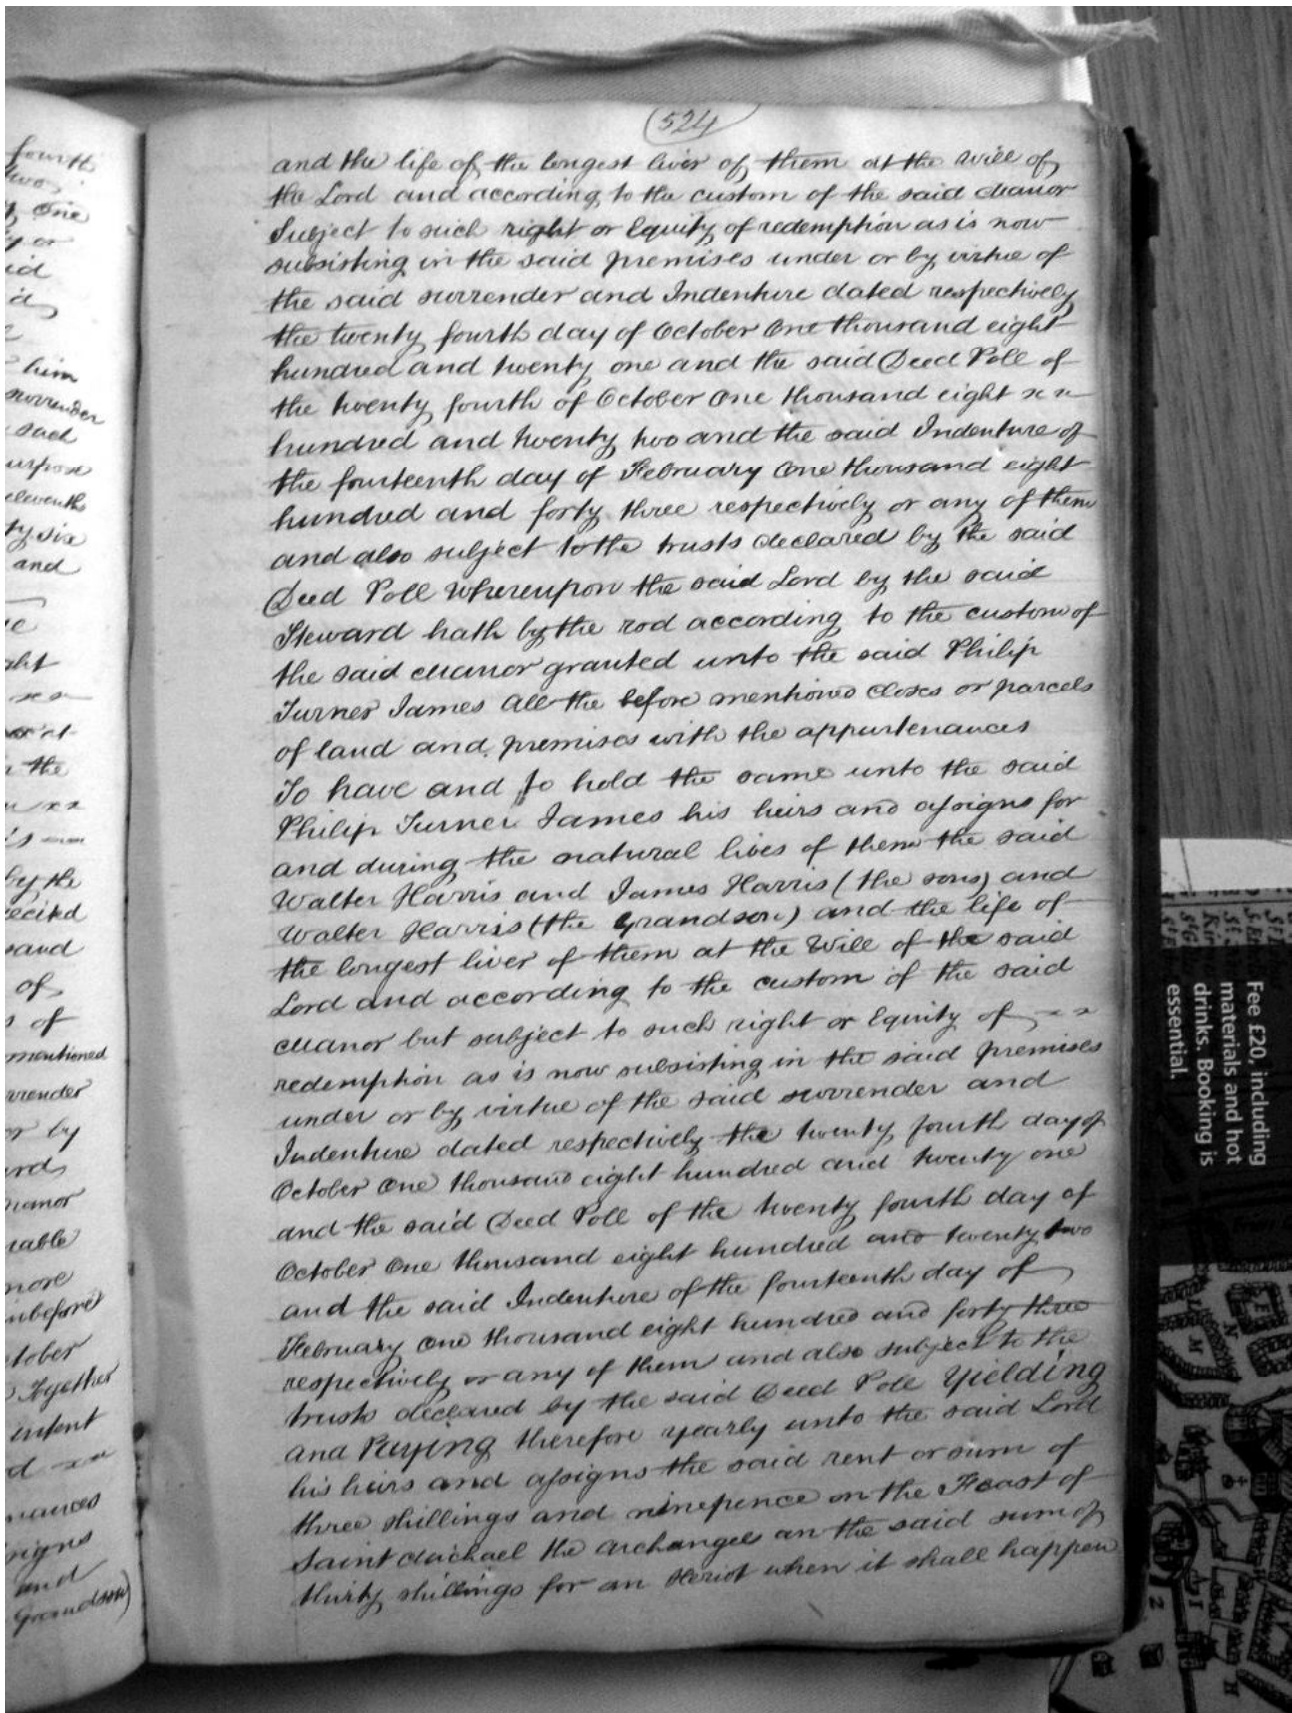 524
and the life of the longest liver of them at the will of
the Lord and according to the custom of the said Manor
Subject to such right or Equity of redemption as is now
subsisting in the said premises under or by virtue of
the said surrender and Indenture dated respectively
the twenty fourth day of October One thousand eight
hundred and twenty one and the said Deed Poll of
the twenty fourth of October One thousand eight x x
hundred and twenty two and the said Indenture of
the fourteenth day of February One thousand eight
hundred and forty three respectively or any of them
and also subject to the trusts declared by the said
Deed Poll Whereupon the said Lord by the said
Steward hath by the rod according to the custom of
the said Manor granted unto the said Philip
Turner James All the before mentioned closes or parcels
of land and premises with the appurtenances
To have and to hold the same unto the said
Philip Turner James his heirs and assigns for
and during the natural lives of them the said
Walter Harris and James Harris (the sons) and
Walter Harris (the Grandson) and the life of
the longest liver of them at the Will of the said
Lord and according to the custom of the said
Manor but subject to such right or Equity of x x
redemption as is now subsisting in the said premises
under or by virtue of the said surrender and
Indenture dated respectively the twenty fourth day of
October One thousand eight hundred and twenty one
and the said Deed Poll of the twenty fourth day of
October One thousand eight hundred and twenty two
and the said Indenture of the fourteenth day of
February One thousand eight hundred and forty three
respectively or any of them and also subject to the
trusts declared by the said Deed Poll Yielding
and Paying therefore yearly unto the said Lord
his heirs and assigns the said rent or sum of
three shillings and ninepence on the Feast of
Saint Michael the Archangel an the said sum of
thirty shillings for an Heriot when it shall happen
fourth
two
One
or
him
surrender
said
eleventh
ty six
and
the
by the
recited
said
of
of
mentioned
by
more
Together
intent
and
Grandson)
Fee £20, including
materials and hot
drinks. Booking is
essential.